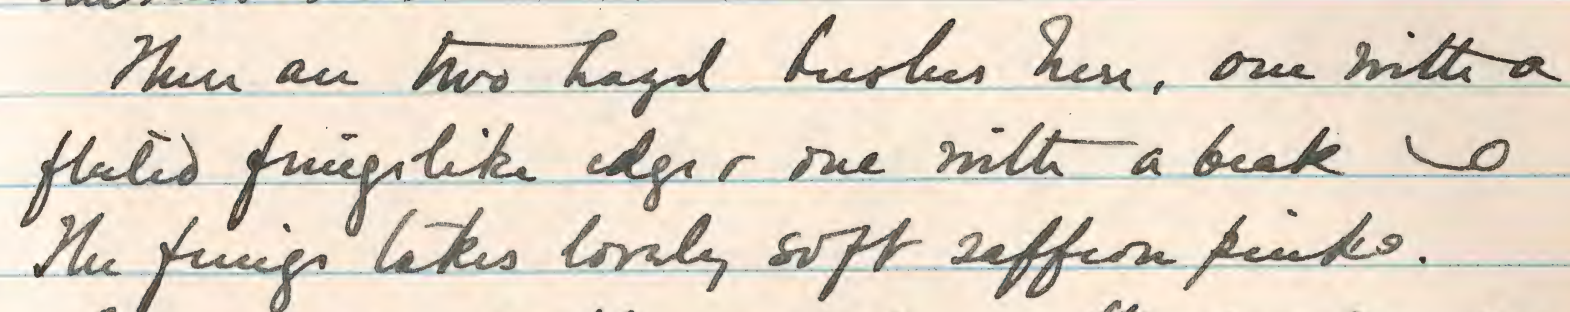 There are two hazel bushes here, one with a
fluted fringe like edge & one with a beak
The fringe takes lovely soft saffron pinks.